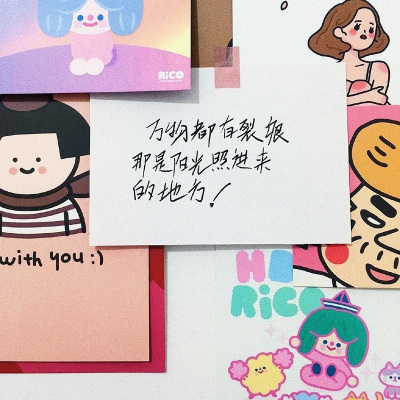 RiCO
万物都有裂痕
那是阳光照进来
的地方！
with you :)
RiCO